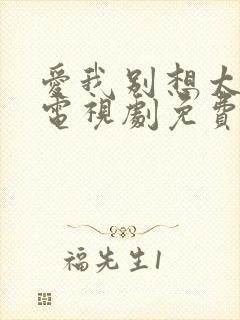 愛我別想太
電視劇免費
福先生1